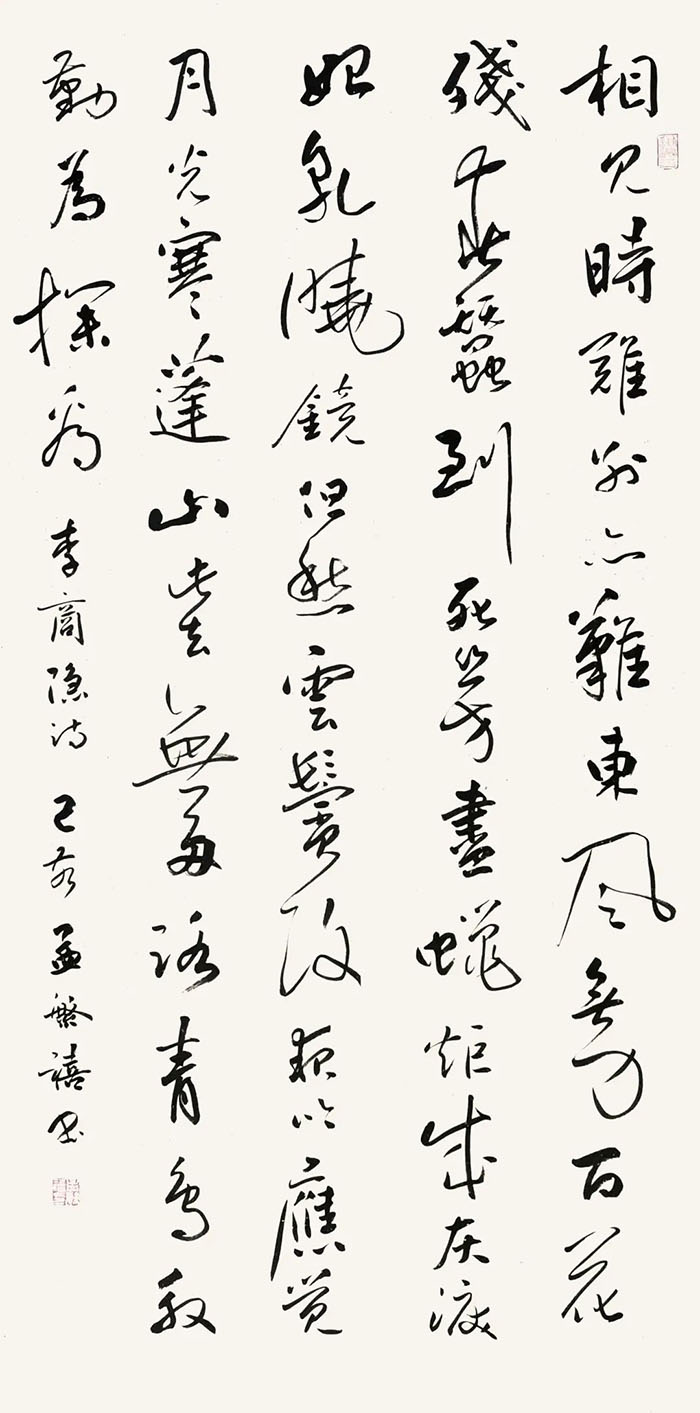 相見時難別亦難東風無力百花
殘春蠶到死絲方盡蠟炬成灰淚
始乾曉鏡但愁雲鬢改夜吟應覺
月光寒蓬山此去無多路青鳥殷
勤為探看 李商隱詩 己亥 孟繁禧書